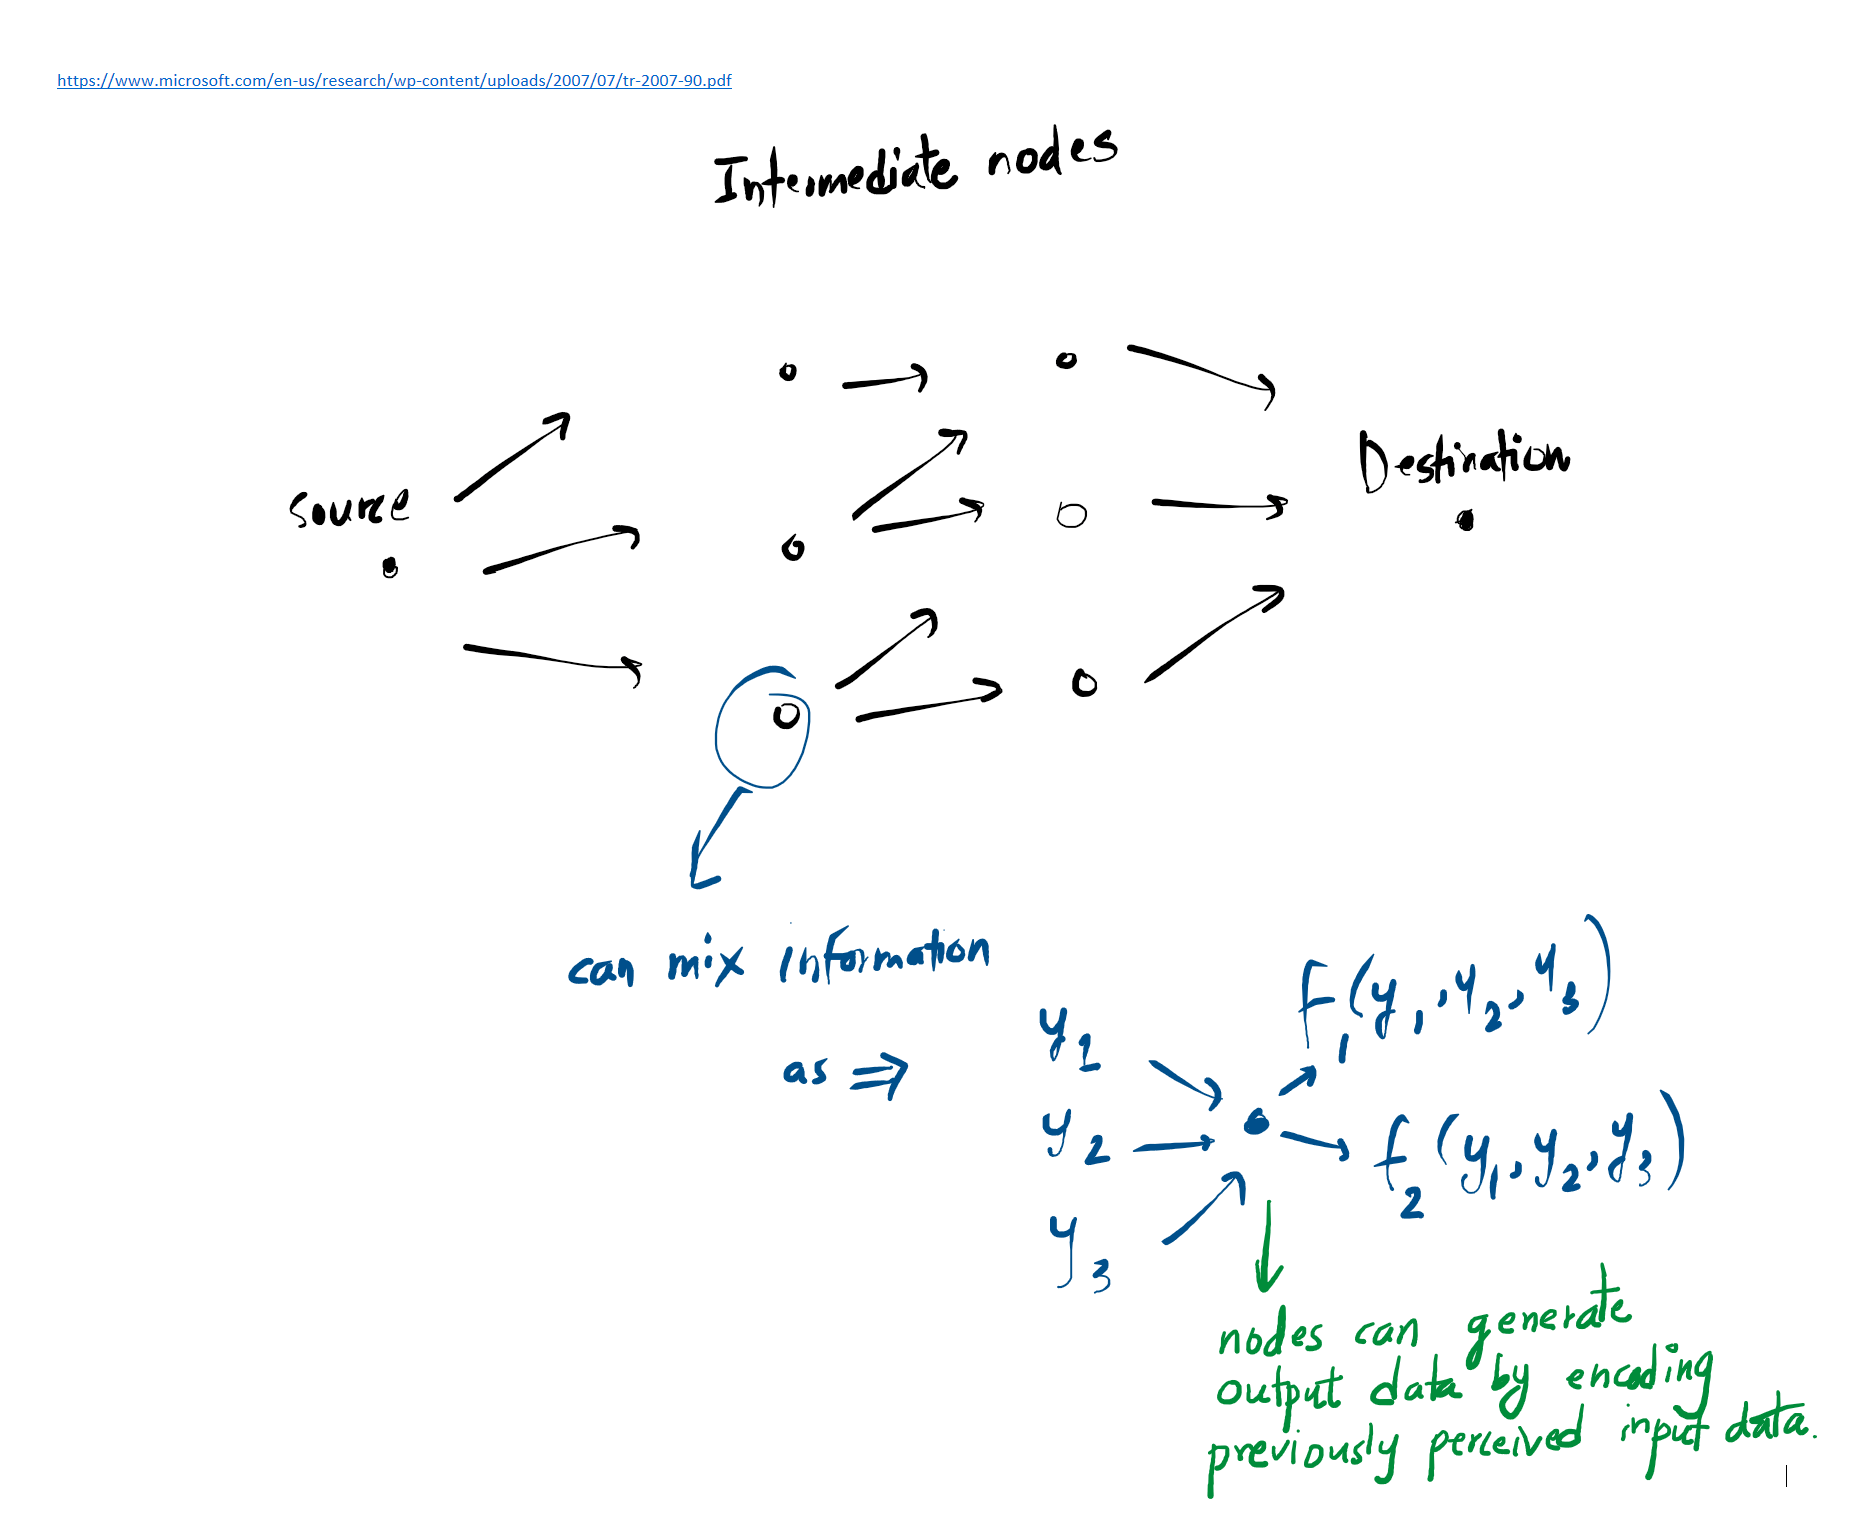 https://www.microsoft.com/en-us/research/wp-content/uploads/2007/07/tr-2007-90.pdf
Intermediate nodes
Source
Destination
can mix information
as ⇒
y1
y2
y3
f1(y1,y2,y3)
f2(y1,y2,y3)
nodes can generate
output data by encoding
previously perceived input data.